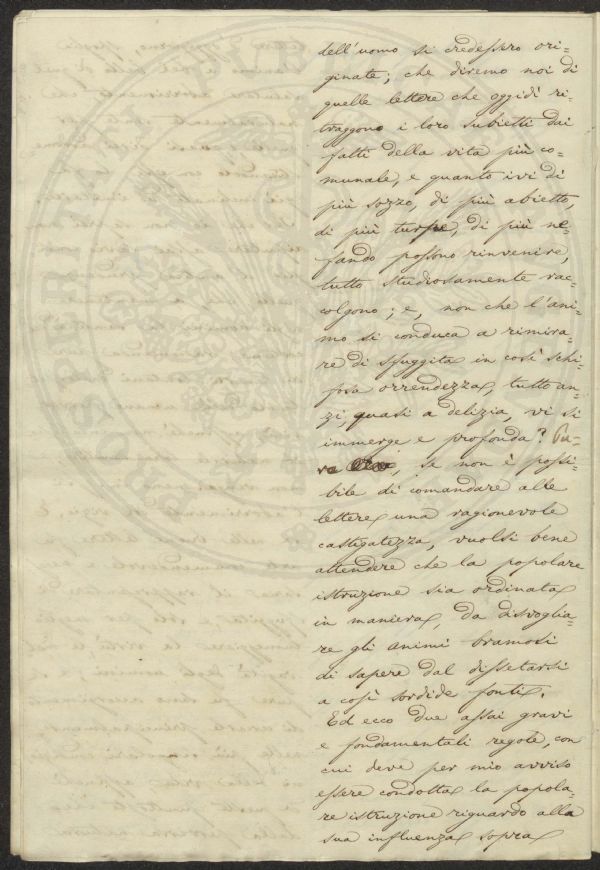 dell'uomo si credessero ori=
ginate; che diremo noi di
quelle lettere che oggidì ri=
traggono i loro subietti dai
fatti della vita più co=
munale, e quanto ivi di
più sozzo, di più abietto,
di più turpe, di più ne=
fando possono rinvenire,
tutto studiosamente rac=
colgono; e, non che l'ani=
mo si conduca a rimira=
re di sfuggita in così schi=
fosa orrendezza, tutto an=
zi, quasi a delizia, vi si
immerge e profonda? Pu=
re, se non è possi=
bile di comandare alle
lettere una ragionevole
castigatezza, vuolsi bene
attendere che la popolare
istruzione sia ordinata
in maniera, da disvoglia=
re gli animi bramosi
di sapere dal dissetarsi
a così sordide fonti.
Ed ecco due assai gravi
e fondamentali regole, con
cui deve per mio avviso
essere condotta la popola=
re istruzione riguardo alla
sua influenza sopra
PROSPERITÀ